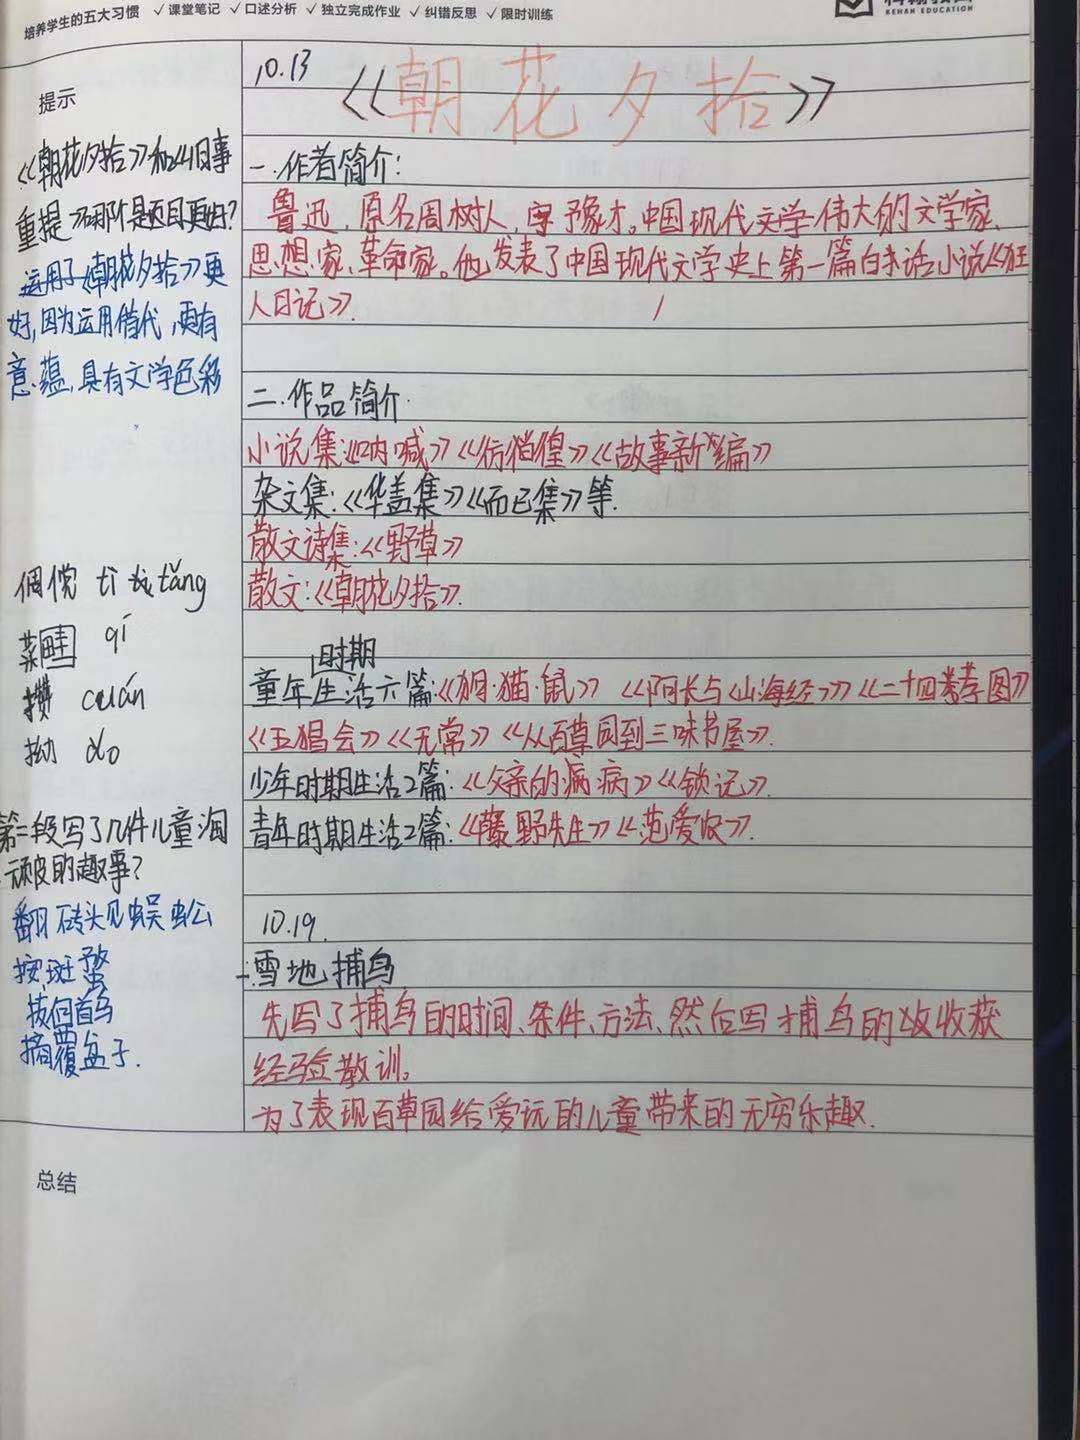 培养学生的五大习惯 ✓课堂笔记 ✓口述分析 ✓独立完成作业 ✓纠错反思 ✓限时训练
KEHAN EDUCATION
提示
《朝花夕拾》和《旧事
重提》哪个题目更好?
运用了《朝花夕拾》更
好,因为运用借代,更有
意蕴,具有文学色彩
倜傥 tì tǎng
菜畦 qí
攒 cuán
拗 ǎo
第二段写了几件儿童淘
顽皮的趣事?
翻砖头见蜈蚣
按斑蝥
拔何首乌
摘覆盆子.
10.13
《朝花夕拾》
一.作者简介:
鲁迅,原名周树人,字豫才。中国现代文学伟大的文学家、
思想家、革命家。他发表了中国现代文学史上第一篇白话小说《狂
人日记》.
二.作品简介.
小说集:《呐喊》《彷徨》《故事新编》
杂文集:《华盖集》《而已集》等.
散文诗集:《野草》
散文:《朝花夕拾》.
时期
童年生活六篇:《狗·猫·鼠》《阿长与《山海经》》《二十四孝图》
《五猖会》《无常》《从百草园到三味书屋》.
少年时期生活2篇:《父亲的病》《锁记》.
青年时期生活2篇:《藤野先生》《范爱农》.
10.19.
雪地捕鸟
先写了捕鸟的时间、条件、方法、然后写捕鸟的收获
经验教训。
为了表现百草园给爱玩的儿童带来的无穷乐趣.
总结